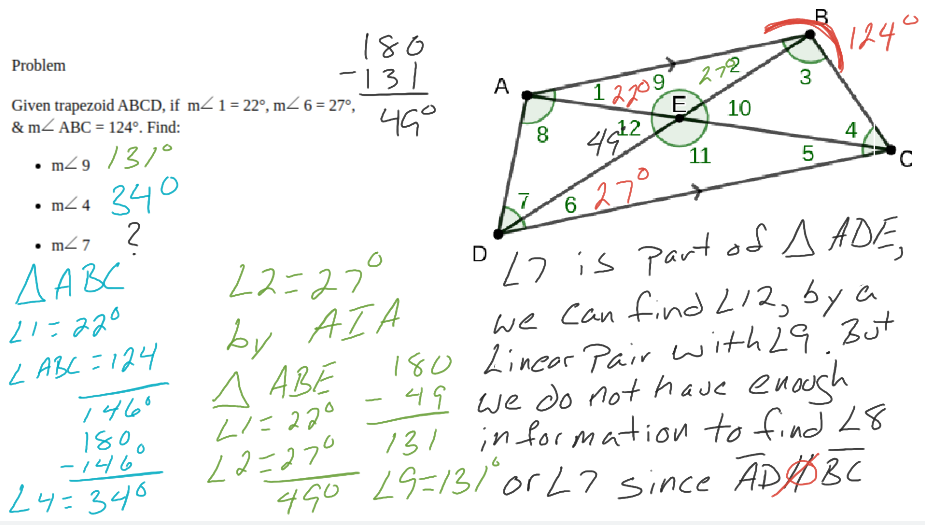 Problem
Given trapezoid ABCD, if m∠ 1 = 22°, m∠ 6 = 27°,
& m∠ ABC = 124°. Find:
• m∠ 9 131°
• m∠ 4 34°
• m∠ 7 ?
180
-131
49°
A
B
124°
1
22°
9
27°
2
3
E
10
8
49
12
11
4
5
C
7
6
27°
D
△ ABC
∠1 = 22°
∠ ABC = 124
146°
180
-146°
∠4 = 34°
∠2 = 27°
by AIA
△ ABE
∠1 = 22°
∠2 = 27°
49°
180
- 49
131
∠9=131°
∠7 is part of △ ADE,
we can find ∠12, by a
Linear Pair with ∠9. But
we do not have enough
information to find ∠8
or ∠7 since AD ∦ BC